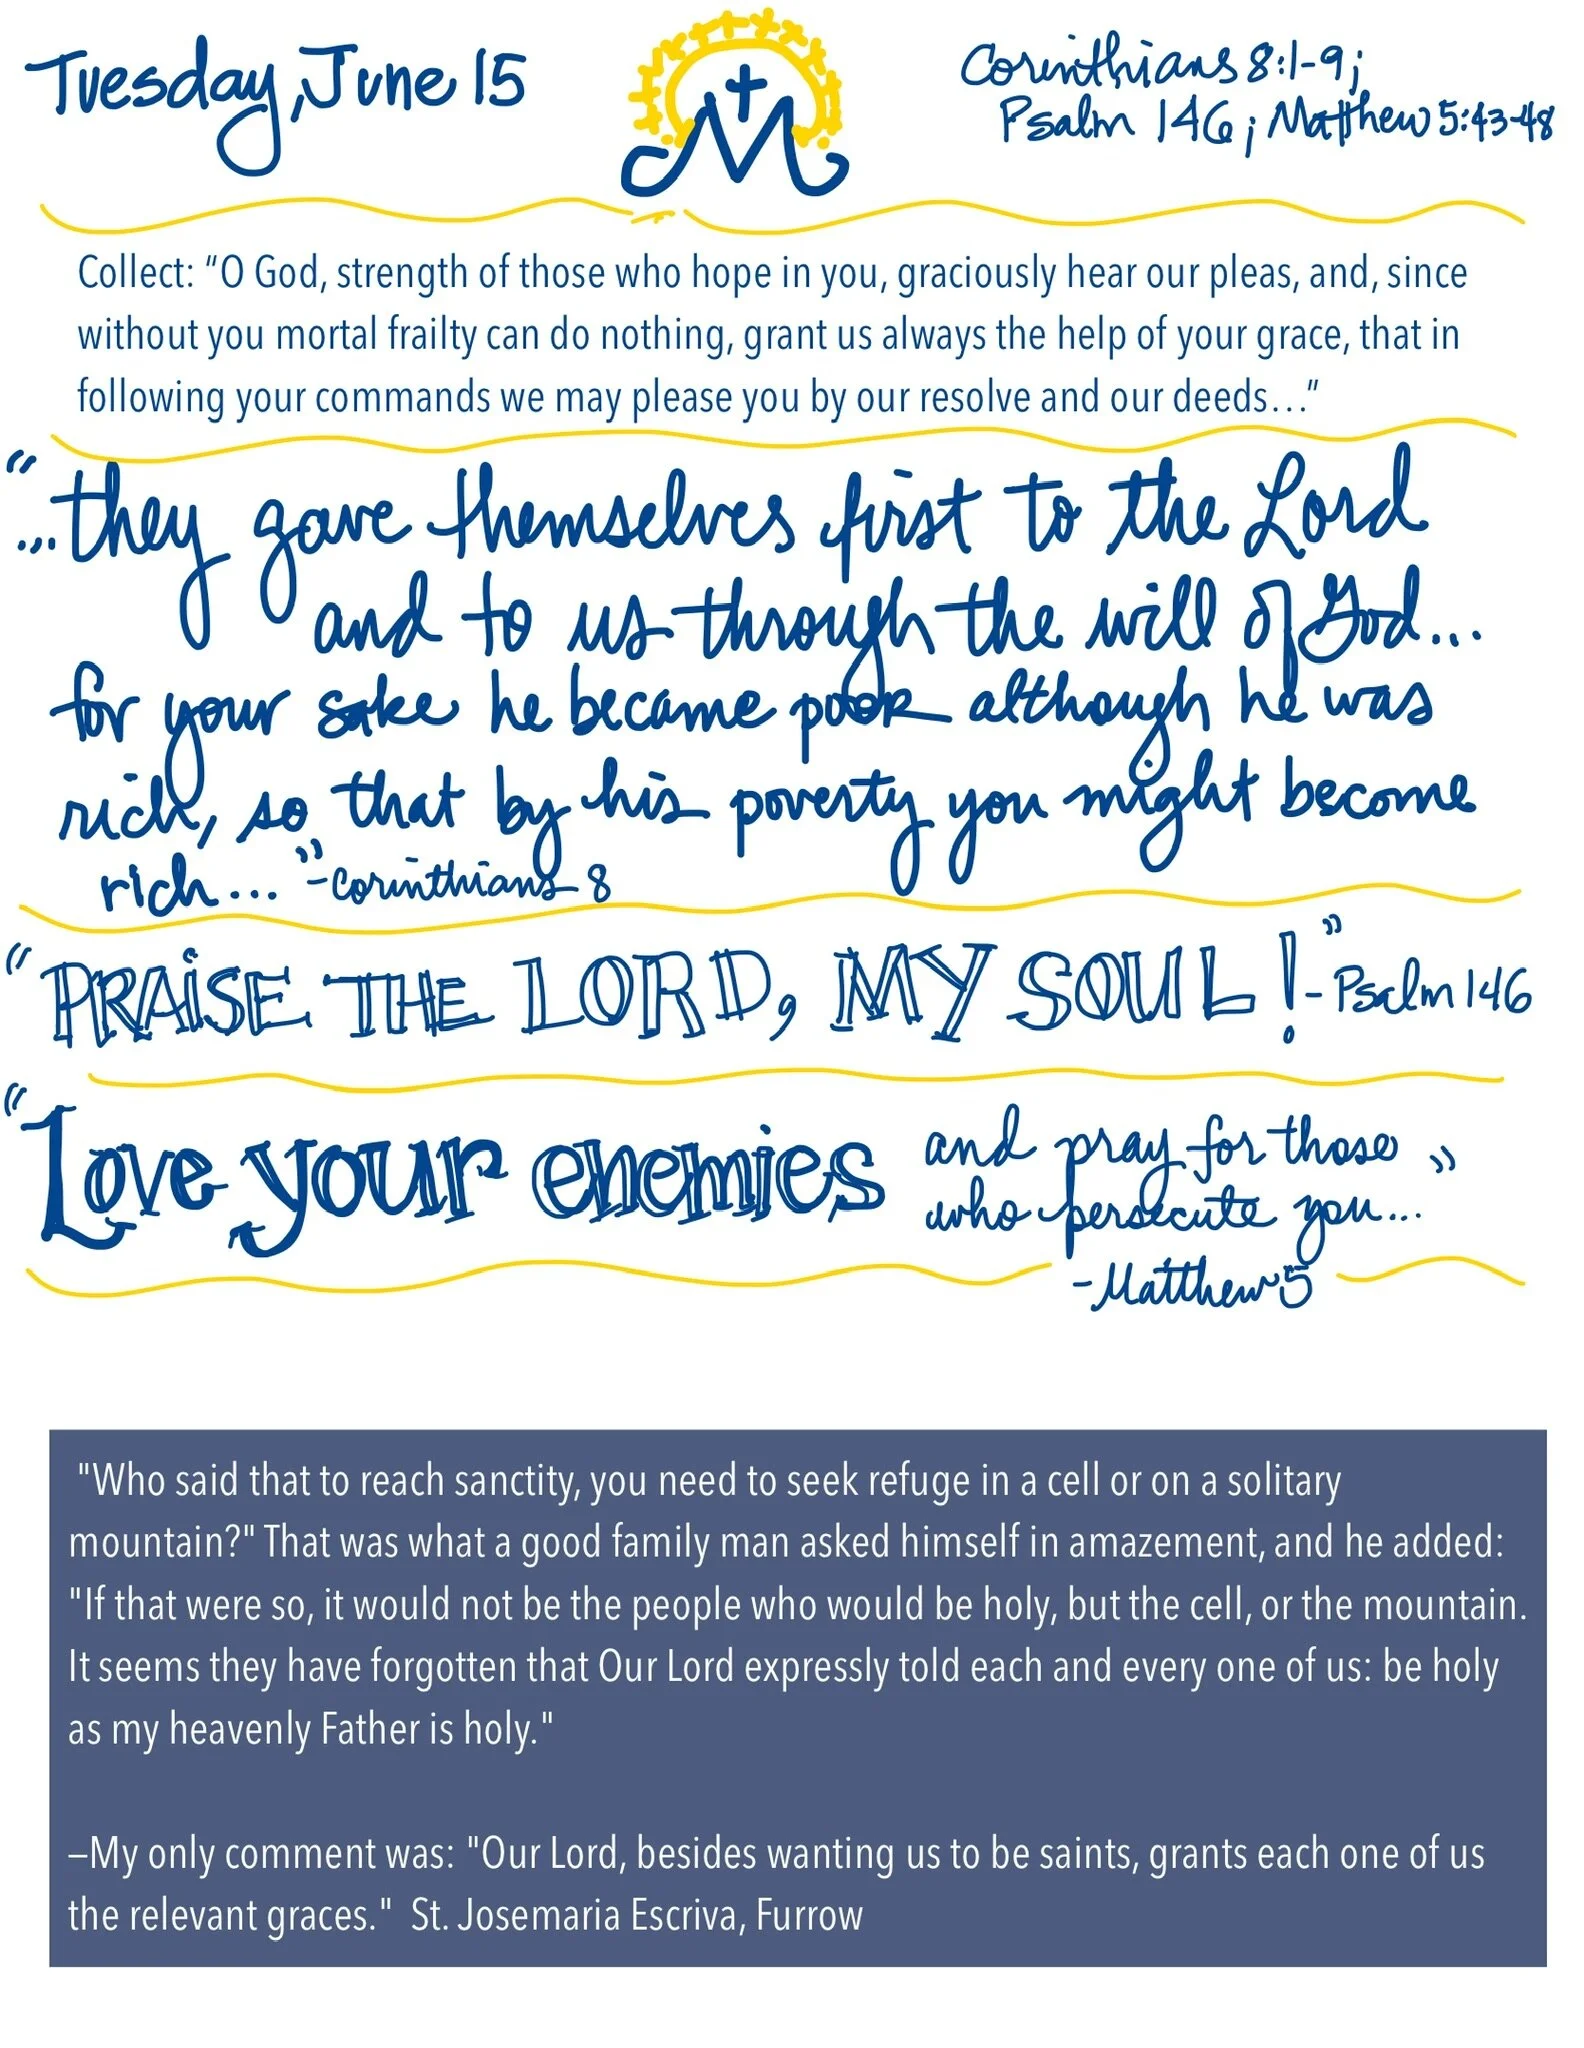 Tuesday, June 15
Corinthians 8:1-9;
Psalm 146; Matthew 5:43-48
M
Collect: “O God, strength of those who hope in you, graciously hear our pleas, and, since
without you mortal frailty can do nothing, grant us always the help of your grace, that in
following your commands we may please you by our resolve and our deeds…”
“...they gave themselves first to the Lord
and to us through the will of God...
for your sake he became poor although he was
rich, so that by his poverty you might become
rich...” -Corinthians 8
“PRAiSE THE LORD, MY SOUL!” - Psalm 146
“Love your enemies and pray for those
who persecute you...”
-Matthew 5
"Who said that to reach sanctity, you need to seek refuge in a cell or on a solitary
mountain?" That was what a good family man asked himself in amazement, and he added:
"If that were so, it would not be the people who would be holy, but the cell, or the mountain.
It seems they have forgotten that Our Lord expressly told each and every one of us: be holy
as my heavenly Father is holy."
—My only comment was: "Our Lord, besides wanting us to be saints, grants each one of us
the relevant graces." St. Josemaria Escriva, Furrow